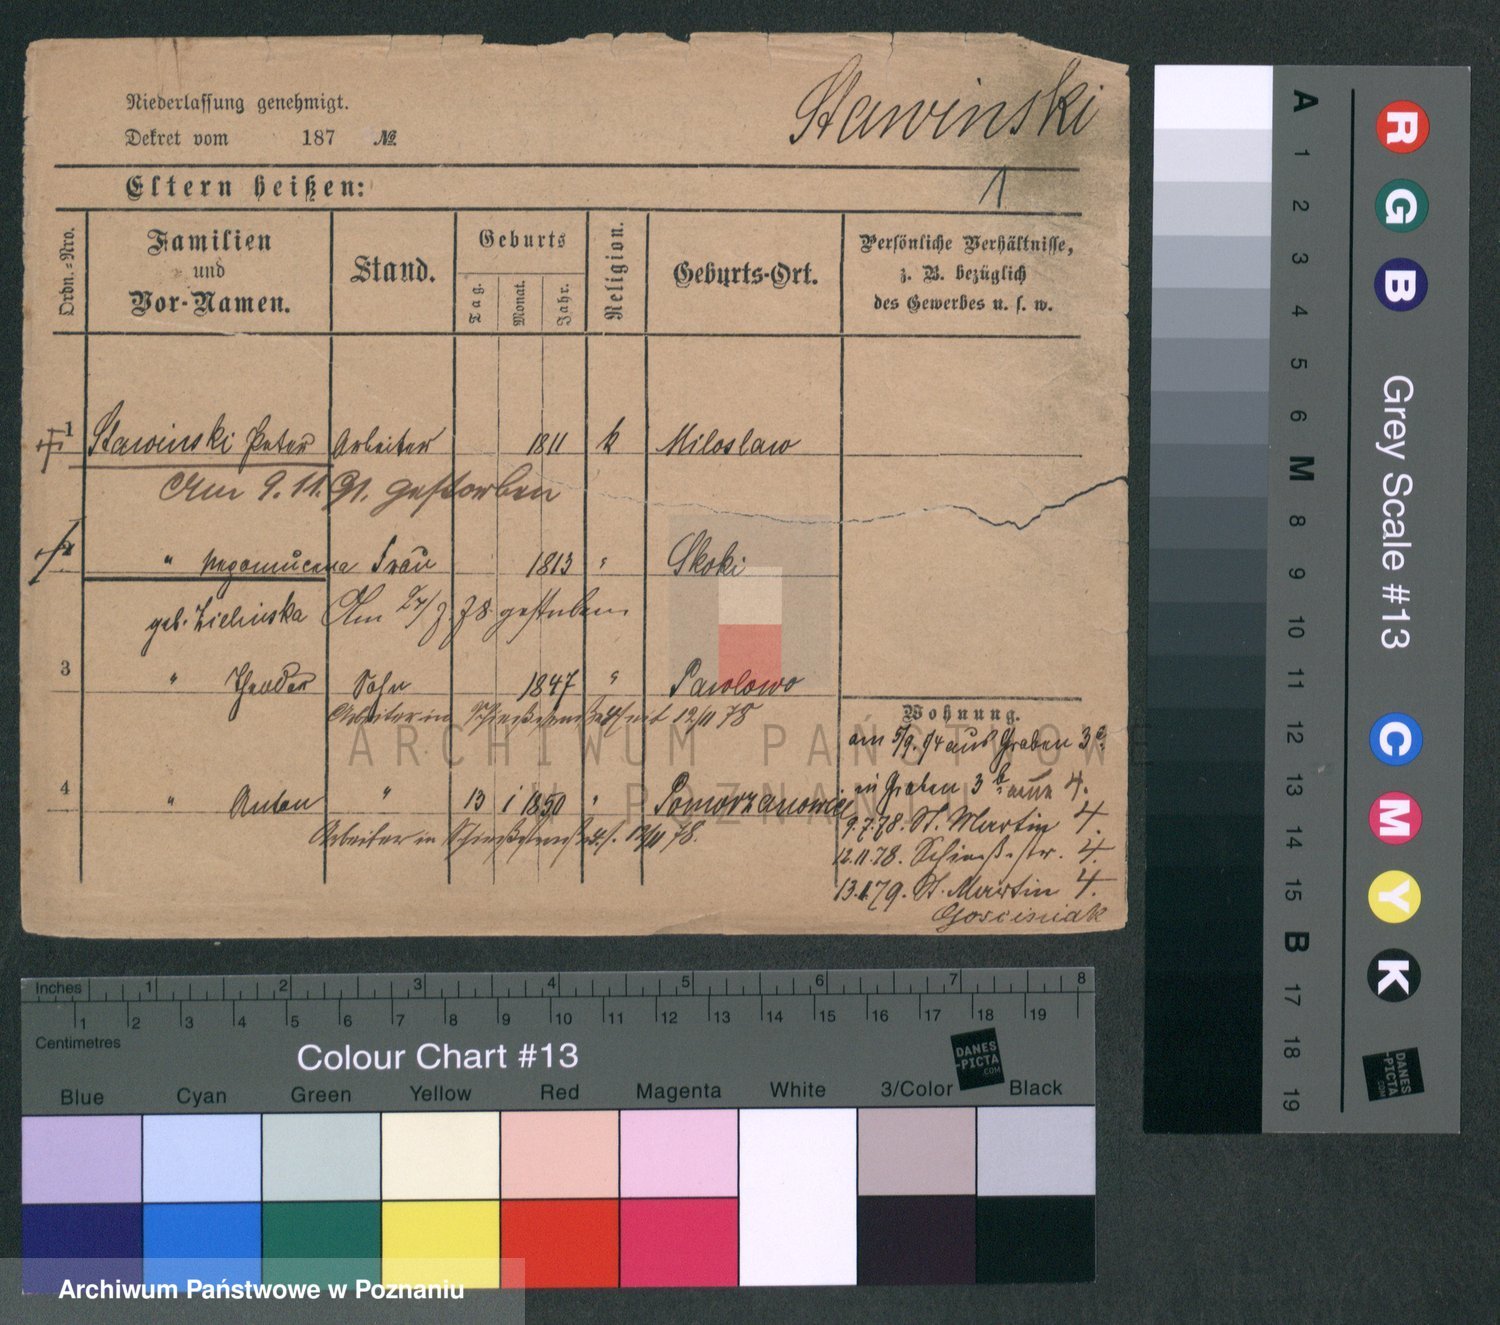 Niederlassung genehmigt.
Dekret vom 187 №
Stawinski
Eltern heißen:
1
Ordn.-Nro.
Familien
und
Vor-Namen.
Stand.
Geburts
Tag.
Monat.
Jahr.
Religion.
Geburts-Ort.
Persönliche Verhältnisse,
z. B. bezüglich
des Gewerbes u. s. w.
1 Stawinski Peter Arbeiter 1811 k Miloslaw
Am 9.11.91. gestorben
2 " Nepomucena Frau 1813 " Skoki
geb. Zielinska Am 27/7 78 gestorben
3 " Theodor Sohn 1847 " Pawlowo
Arbeiter in seit 12/11 78
4 " Anton " 13 1 1850 " Pomorzanowice
Arbeiter in 12/11 78.
Wohnung.
am 5/9. 74 aus Graben 3
in Graben 3 b neue 4.
9.7.78. St. Martin 4.
12.11.78. Schieß-str. 4.
13.1.79. St. Martin 4.
Gosciniak
ARCHIWUM PAŃSTWOWE
W POZNANIU
A
1
2
3
4
5
6
M
8
9
10
11
12
13
14
15
B
17
18
19
R
G
B
Grey Scale #13
C
M
Y
K
DANES
-PICTA
.COM
Inches 1 2 3 4 5 6 7 8
1 2 3 4 5 6 7 8 9 10 11 12 13 14 15 16 17 18 19
Centimetres
Colour Chart #13
DANES
-PICTA
.COM
Blue Cyan Green Yellow Red Magenta White 3/Color Black
Archiwum Państwowe w Poznaniu